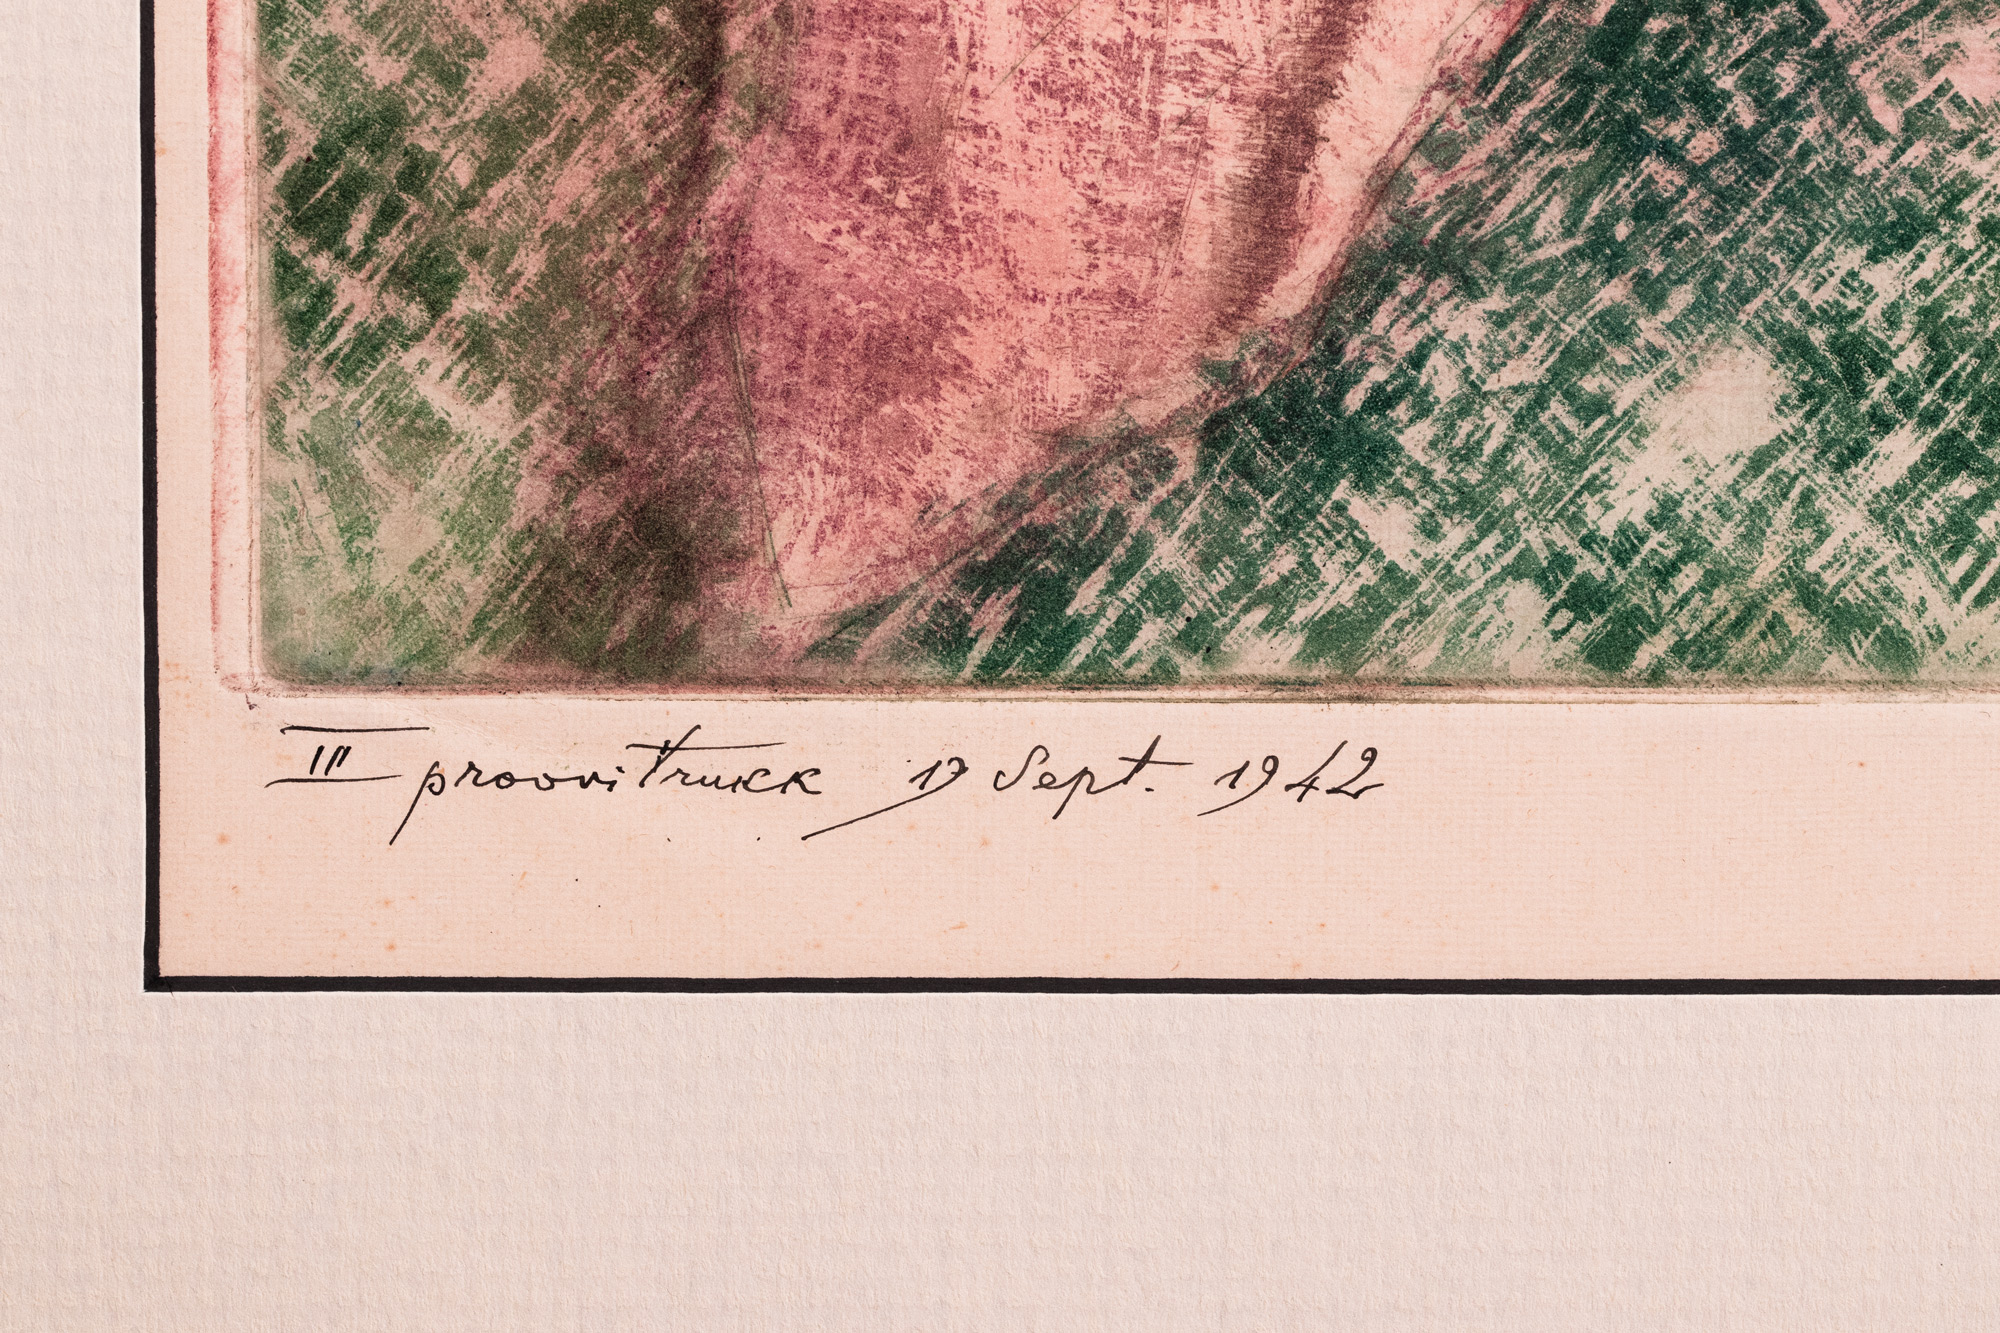 IIIproovitrukk 19 Sept. 1942